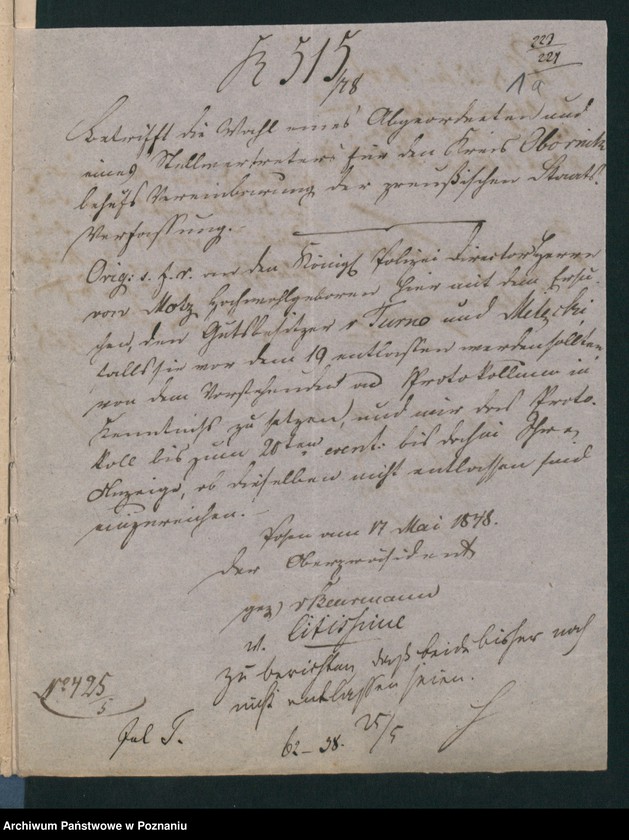 K 515/48
223
224
1a
Betrifft die Wahl eines Abgeordneten und
eines Stellvertreters für den Kreis Obornik
behufs Vereinbarung der preußischen Staats-
Verfassung.
Orig: s. p. r. an den Königl Polizei Director Herrn
von Motz Hochwohlgeboren hier mit dem Ersu-
chen, den Gutsbesitzer v Turno und Melęcki
falls sie vor dem 19 entlassen werden sollten
von dem Vorstehenden ad Protokollum in
Kenntniß zu setzen, und mir das Proto-
koll bis zum 20ten event. bis dahin Ihre
Anzeige, ob dieselben nicht entlassen sind
einzureichen.
Posen am 17 Mai 1848.
Der Oberpräsident
gez) v Beurmann
w. Citissime
zu berichten daß beide bisher noch
nicht entlassen seien.
No 425/5
25/5
62-38.